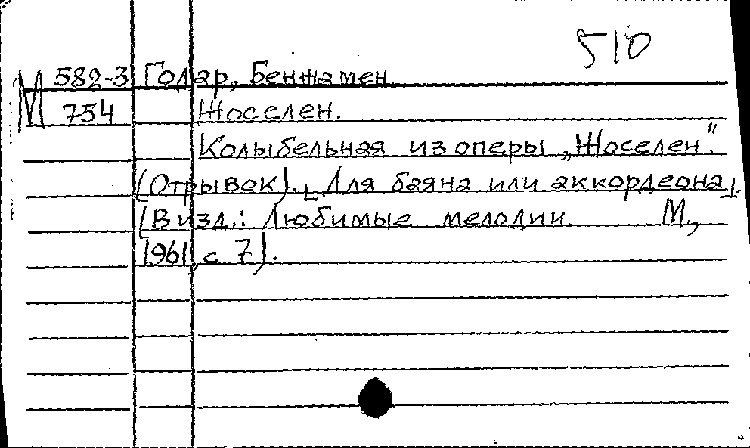 510
М 582-3 Годар, Бенжамен.
754 Жоселен.
Колыбельная из оперы „Жоселен".
(Отрывок). [Для баяна или аккордеона].
(В изд.: Любимые мелодии. М.,
1961, с 7).